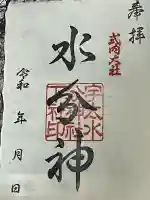 奉拝
式内大社
水分神
令和 年 月 日